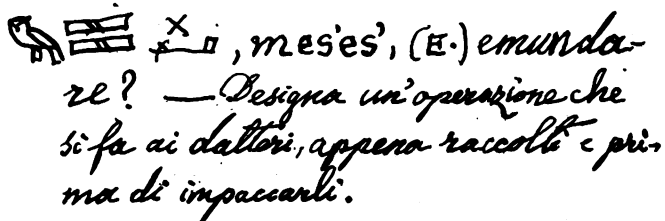 𓅓𓈙𓈙 , mes'es', (E.) emunda-
re? — Designa un'operazione che
si fa ai datteri, appena raccolti e pri-
ma di impaccarli.